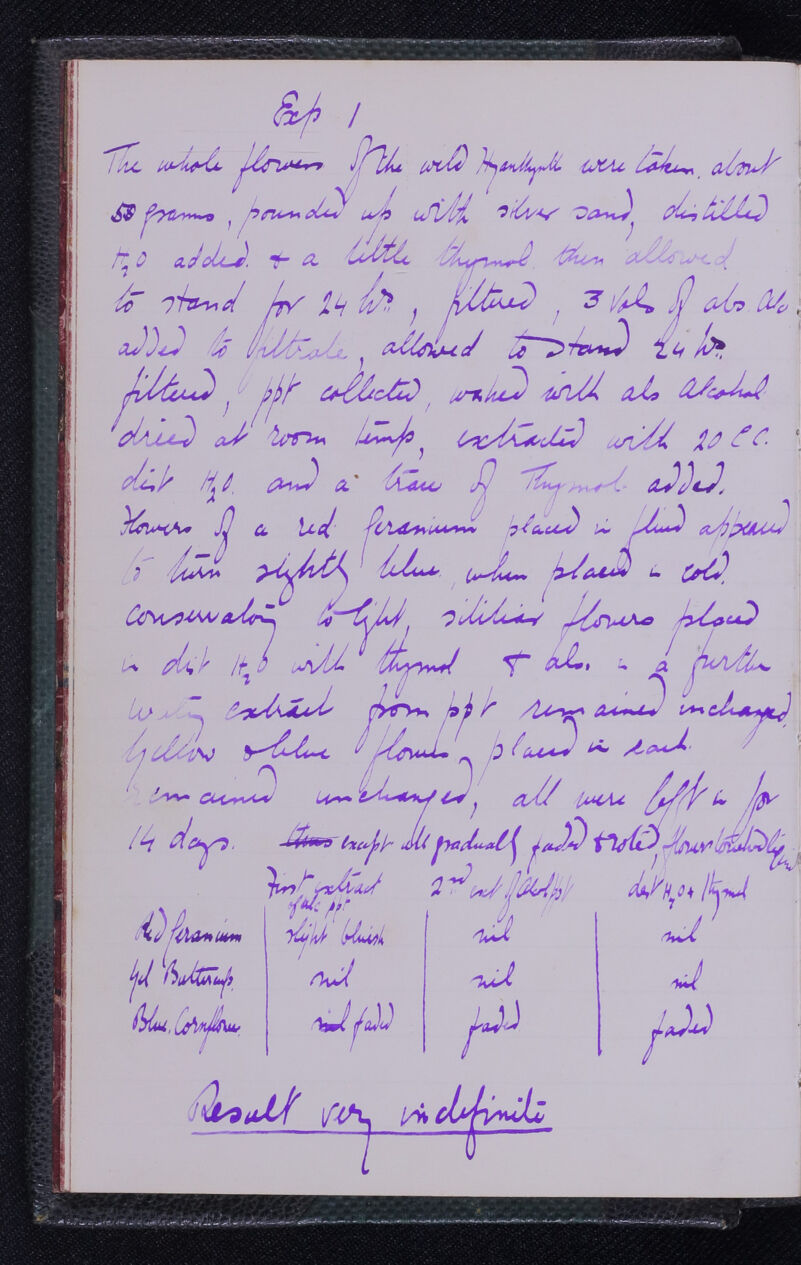 Exp 1
The whole flowers of the wild Hyanthynth were taken. about
50 grams, pounded up with silver sand, distilled
H2O added. & a little thymol. then allowed
to stand for 24 hrs, filtered, 3 Vols of abs. Alc
added to filtrate, allowed to stand 24 hrs.
filtered, ppt collected, washed with abs Alcohol
dried at room temp, extracted with 20 CC.
dist H2O. and a trace of Thymol added.
Flowers of a red Geranium placed in fluid appeared
to turn slightly blue, when placed in cold.
conservatory to light, similar flowers placed
in dist H2O with thymol & also in a further
watery extract from ppt remained unchanged.
Yellow & blue flowers placed in each.
remained unchanged, all were left in for
14 days. thus except all gradually faded & roted, flowers
First extract 2nd ext of Alcol ppt dist H2O + Thymol
of alc ppt
Red Geranium slight bluish nil nil
Yel Buttercup. nil nil nil
Blue. Cornflower. nil faded faded faded
Result very indefinite